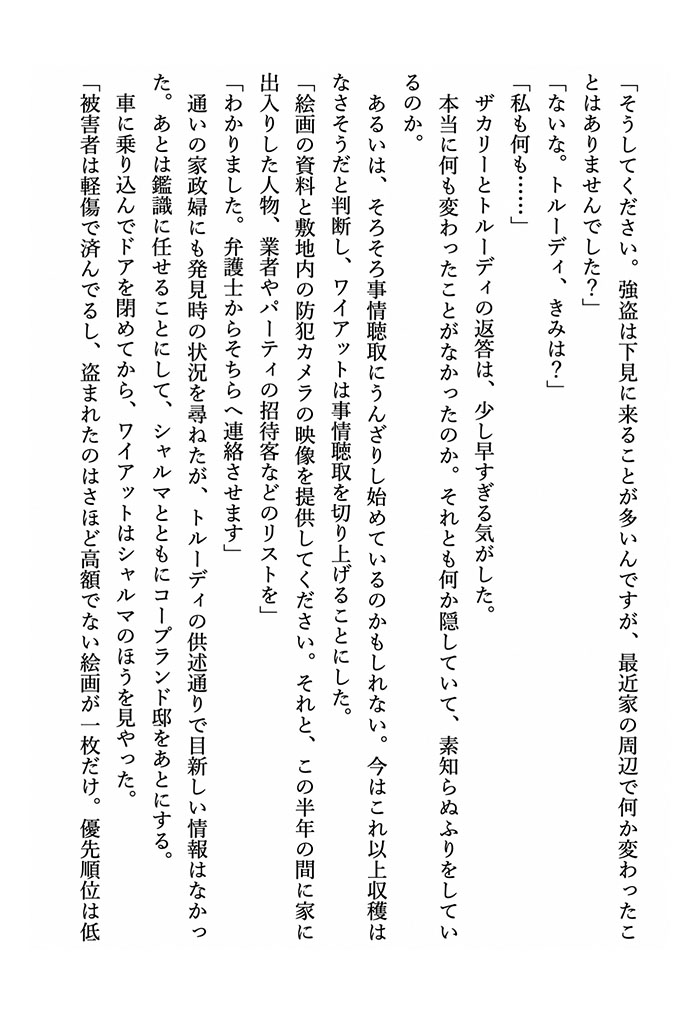 「そうしてください。強盗は下見に来ることが多いんですが、最近家の周辺で何か変わったこ
とはありませんでした？」
「ないな。トルーディ、きみは？」
「私も何も……」
ザカリーとトルーディの返答は、少し早すぎる気がした。
本当に何も変わったことがなかったのか。それとも何か隠していて、素知らぬふりをしてい
るのか。
あるいは、そろそろ事情聴取にうんざりし始めているのかもしれない。今はこれ以上収穫は
なさそうだと判断し、ワイアットは事情聴取を切り上げることにした。
「絵画の資料と敷地内の防犯カメラの映像を提供してください。それと、この半年の間に家に
出入りした人物、業者やパーティの招待客などのリストを」
「わかりました。弁護士からそちらへ連絡させます」
通いの家政婦にも発見時の状況を尋ねたが、トルーディの供述通りで目新しい情報はなかっ
た。あとは鑑識に任せることにして、シャルマとともにコープランド邸をあとにする。
車に乗り込んでドアを閉めてから、ワイアットはシャルマのほうを見やった。
「被害者は軽傷で済んでるし、盗まれたのはさほど高額でない絵画が一枚だけ。優先順位は低